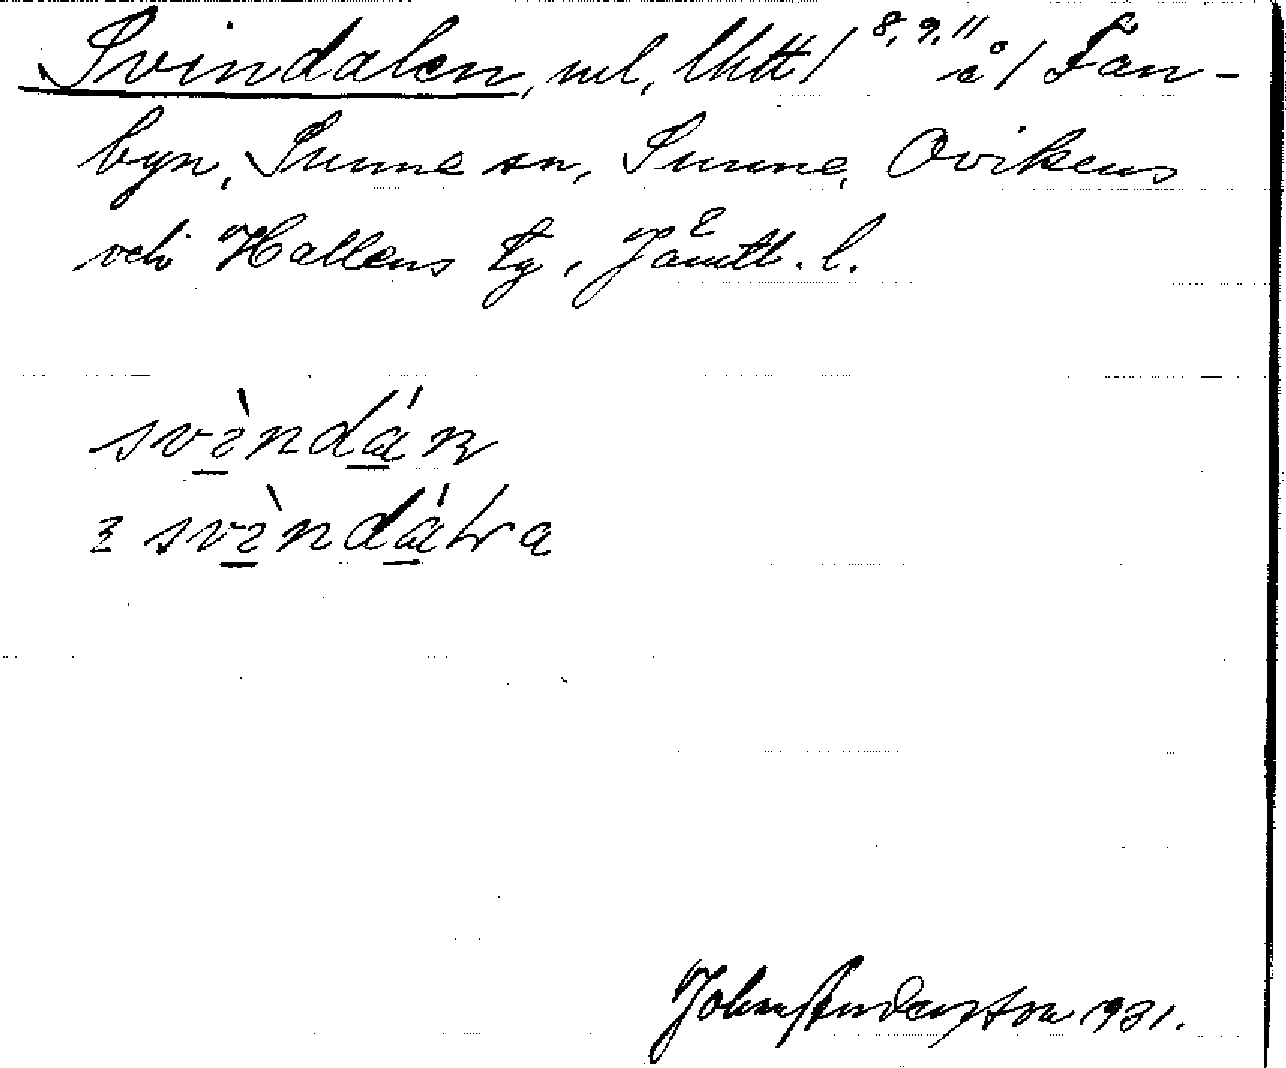 Svindalen, nul, Uktt/ 8, 9, 11 å/ Fan-
byn, Sunne sn, Sunne, Ovikens
och Hallens tg, Jämtl. l.
svìndán
ɪ svìndáƚa
John Anderson 1931.